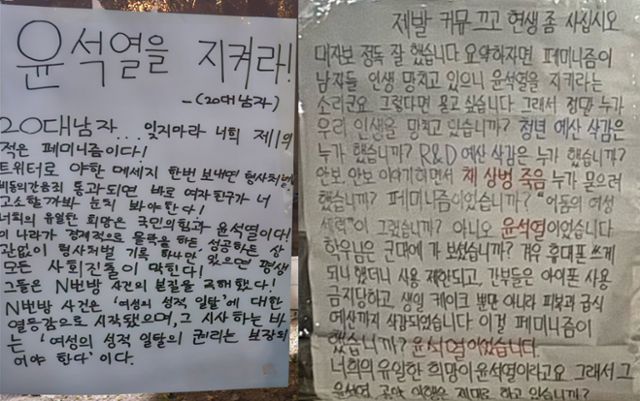 윤석열을 지켜라!
-(20대남자)
20대남자... 잊지마라 너희 제1의
적은 페미니즘이다!
트위터로 야한 메세지 한번 보내면 형사처벌
비동의간음죄 통과되면 바로 여자친구가 너
고소할까봐 눈치 봐야한다!
너희의 유일한 희망은 국민의힘과 윤석열이다!
이 나라가 경제적으로 몰락을 하든 성공하든 상
관없이 형사처벌 기록 하나만 있으면 평생
모든 사회진출이 막힌다!
그들은 N번방 사건의 본질을 곡해했다!
N번방 사건은 '여성의 성적 일탈'에 대한
열등감으로 시작됐으며, 그 시사하는 바
는 '여성의 성적 일탈의 권리는 보장되
어야 한다'이다.
제발 커뮤 끄고 현생 좀 사십시오
대자보 정독 잘 했습니다 요약하자면 페미니즘이
남자들 인생 망치고 있으니 윤석열을 지키라는
소리군요 그렇다면 묻고 싶습니다 그래서 정말 누가
우리 인생을 망치고 있습니까? 청년 예산 삭감은
누가 했습니까? R&D 예산 삭감은 누가 했습니까?
안보 안보 이야기하면서 채 상병 죽음 누가 묻으려
했습니까? 페미니즘이었습니까? "어둠의 여성
세력"이 그랬습니까? 아니오 윤석열이었습니다
학우님은 군대에 가 보셨습니까? 겨우 휴대폰 쓰게
되나 했더니 사용 제한되고, 간부들은 아이폰 사용
금지당하고, 생일 케이크 뿐만 아니라 피복과 급식
예산까지 삭감되었습니다 이걸 페미니즘이
했습니까? 윤석열이었습니다.
너희의 유일한 희망이 윤석열이라고요 그래서 그
윤석열 공약 이행은 제대로 하고 있습니까?